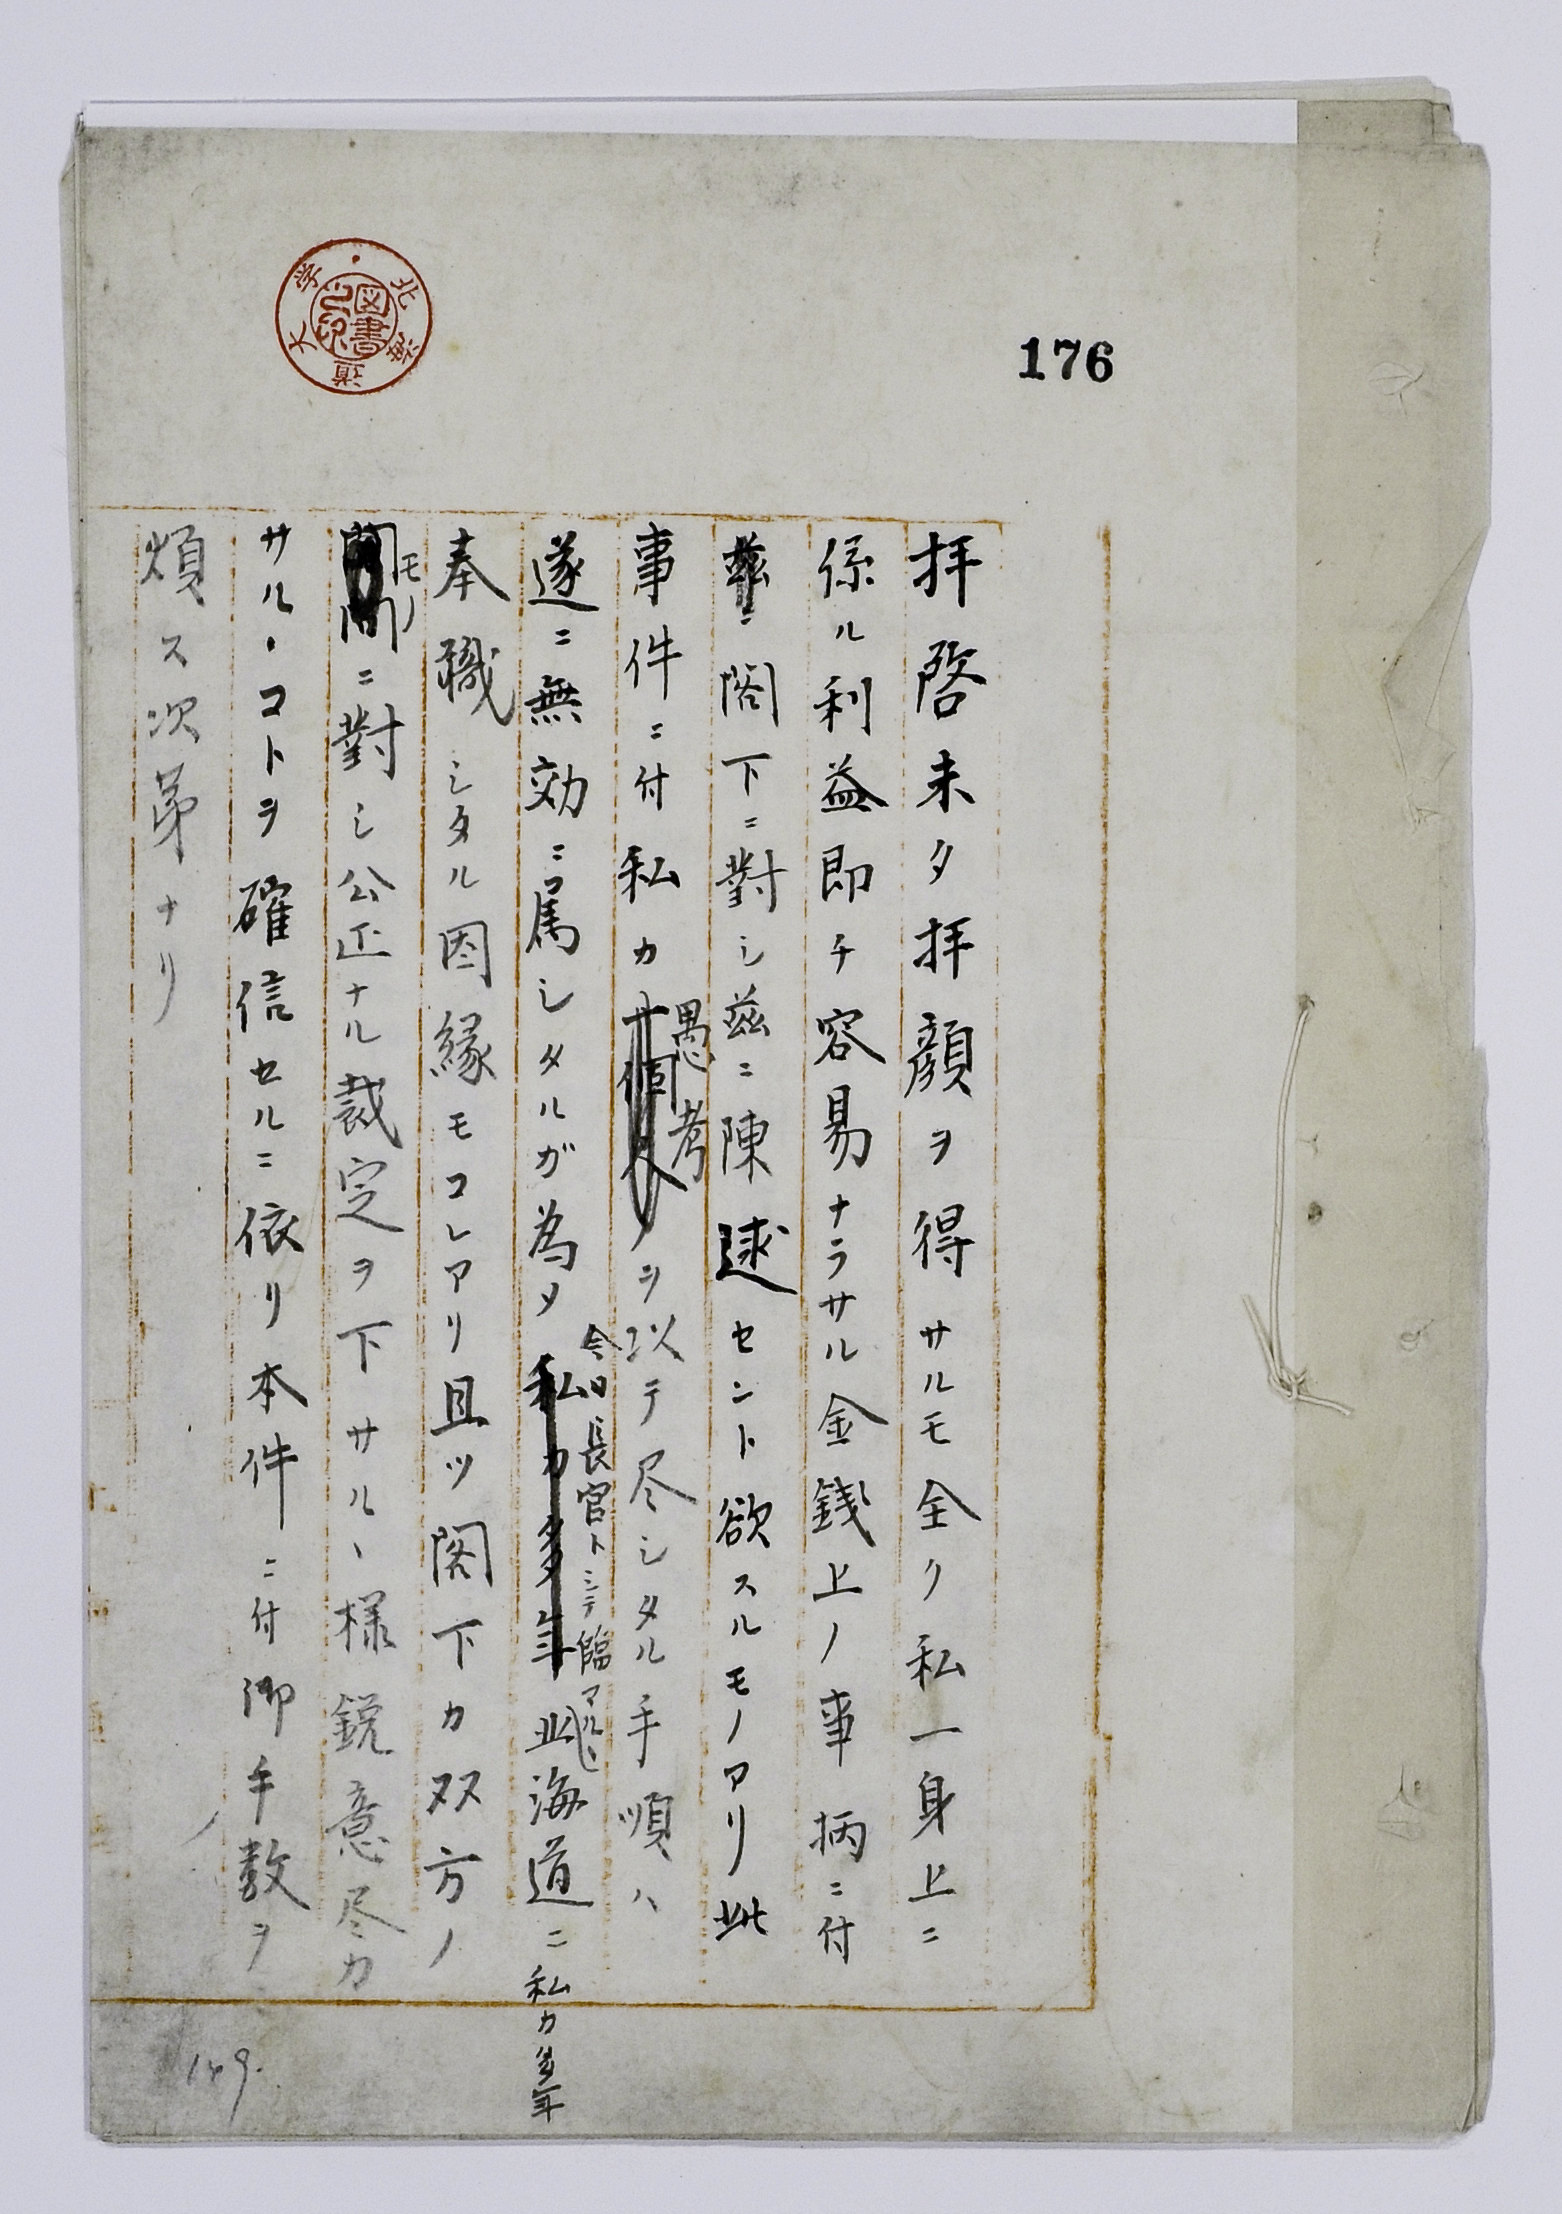 176
拝啓未タ拝顔ヲ得サルモ全ク私一身上ニ
係ル利益即チ容易ナラサル金銭上ノ事柄ニ付
茲ニ閣下ニ對シ茲ニ陳述セント欲スルモノアリ此
事件ニ付私カ愚考ヲ以テ尽シタル手順ハ
遂ニ無効ニ属シタルガ為メ私カ多年此海道ニ私カ多年
今日長官トシテ臨
奉職シタル因縁モコレアリ且ツ閣下カ双方ノ
モノ
間ニ對シ公正ナル裁定ヲ下サル、様鋭意尽力
サル、コトヲ確信セルニ依リ本件ニ付御手数ヲ
煩ス次第ナリ
149.
北海道大学
図書之印